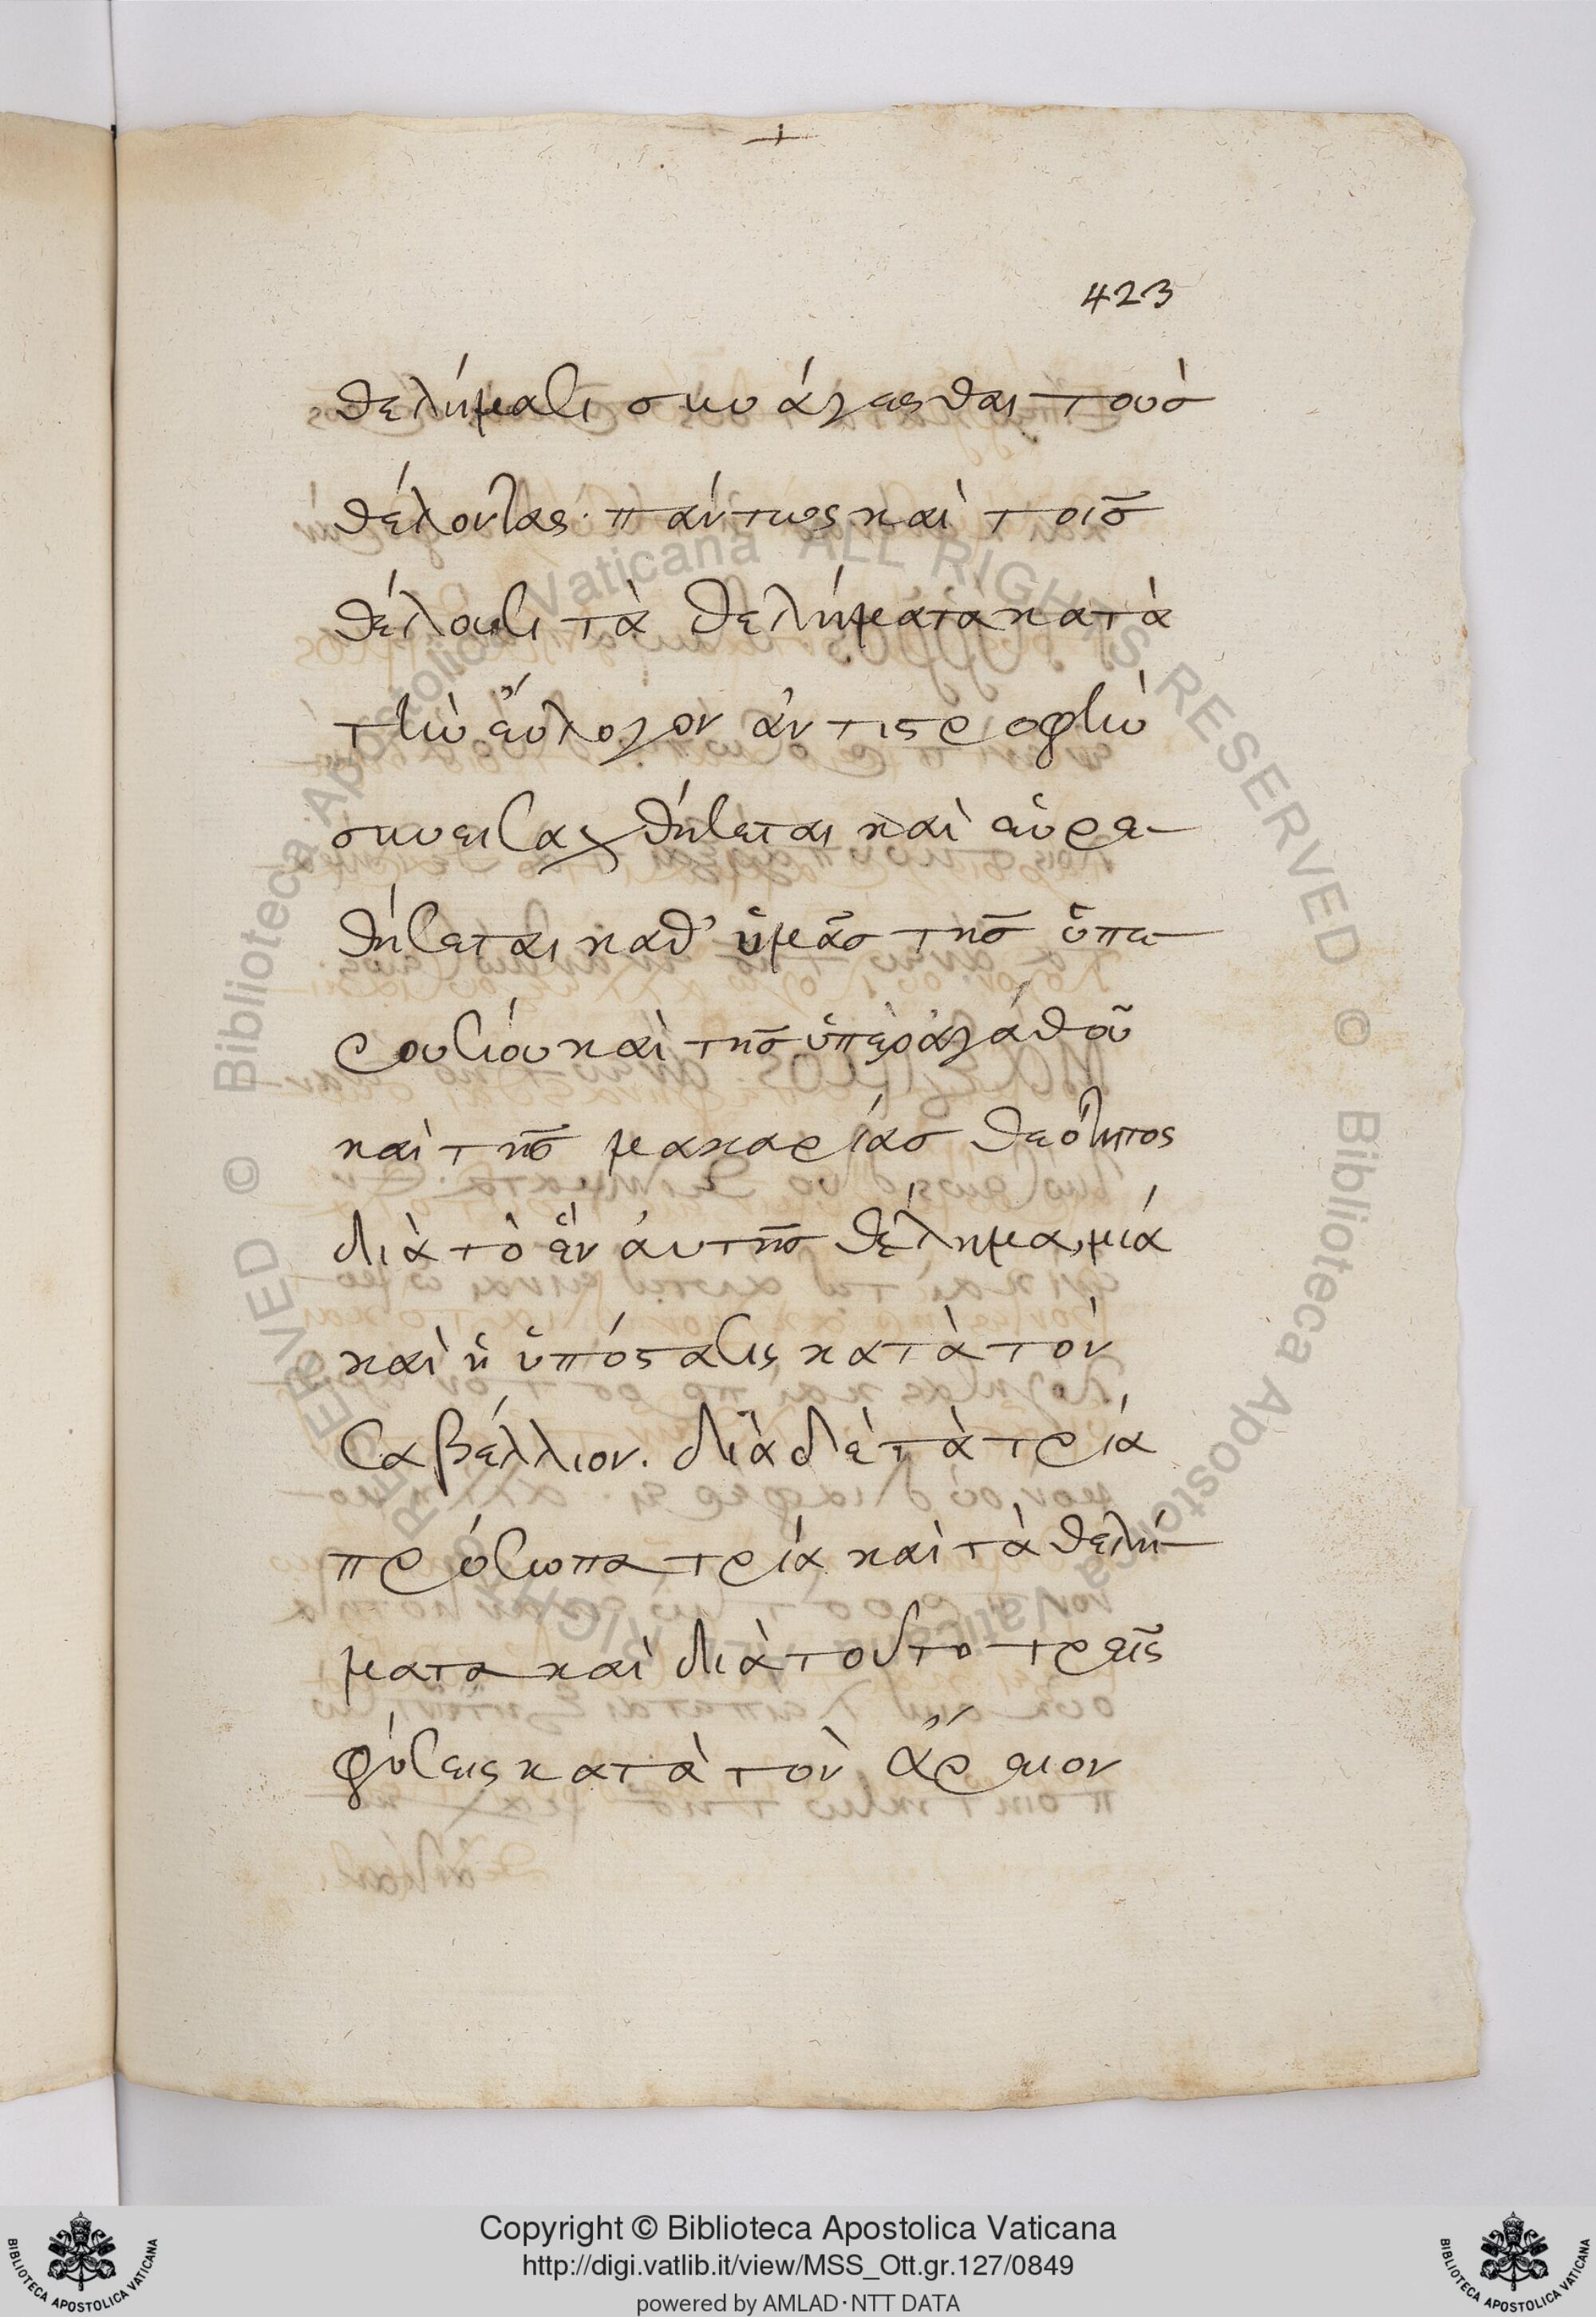 423
θελήμασι συνάγεσθαι τοὺς
θέλοντας· πάντως καὶ τοῖς
θέλουσι τὰ θελήματα κατὰ
τὴν εὔλογον ἀντιστροφὴν
συνεισαχθήσεται καὶ εὑρε-
θήσεται καθ' ὑμᾶς τῆς ὑπε-
ρουσίου καὶ τῆς ὑπεραγάθου
καὶ τῆς μακαρίας θεότητος
διὰ τὸ ἓν αὐτῆς θέλημα, μία
καὶ ἡ ὑπόστασις κατὰ τὸν
Σαβέλλιον. διὰ δὲ τὰ τρία
πρόσωπα τρία καὶ τὰ θελή-
ματα καὶ διὰ τοῦτο τρεῖς
φύσεις κατὰ τὸν Ἄρειον
© Biblioteca Apostolica Vaticana ALL RIGHTS RESERVED © Biblioteca Apostolica Vaticana ALL RIGHTS RESERVED
Copyright © Biblioteca Apostolica Vaticana
http://digi.vatlib.it/view/MSS_Ott.gr.127/0849
powered by AMLAD·NTT DATA
BIBLIOTECA APOSTOLICA VATICANA
BIBLIOTECA APOSTOLICA VATICANA